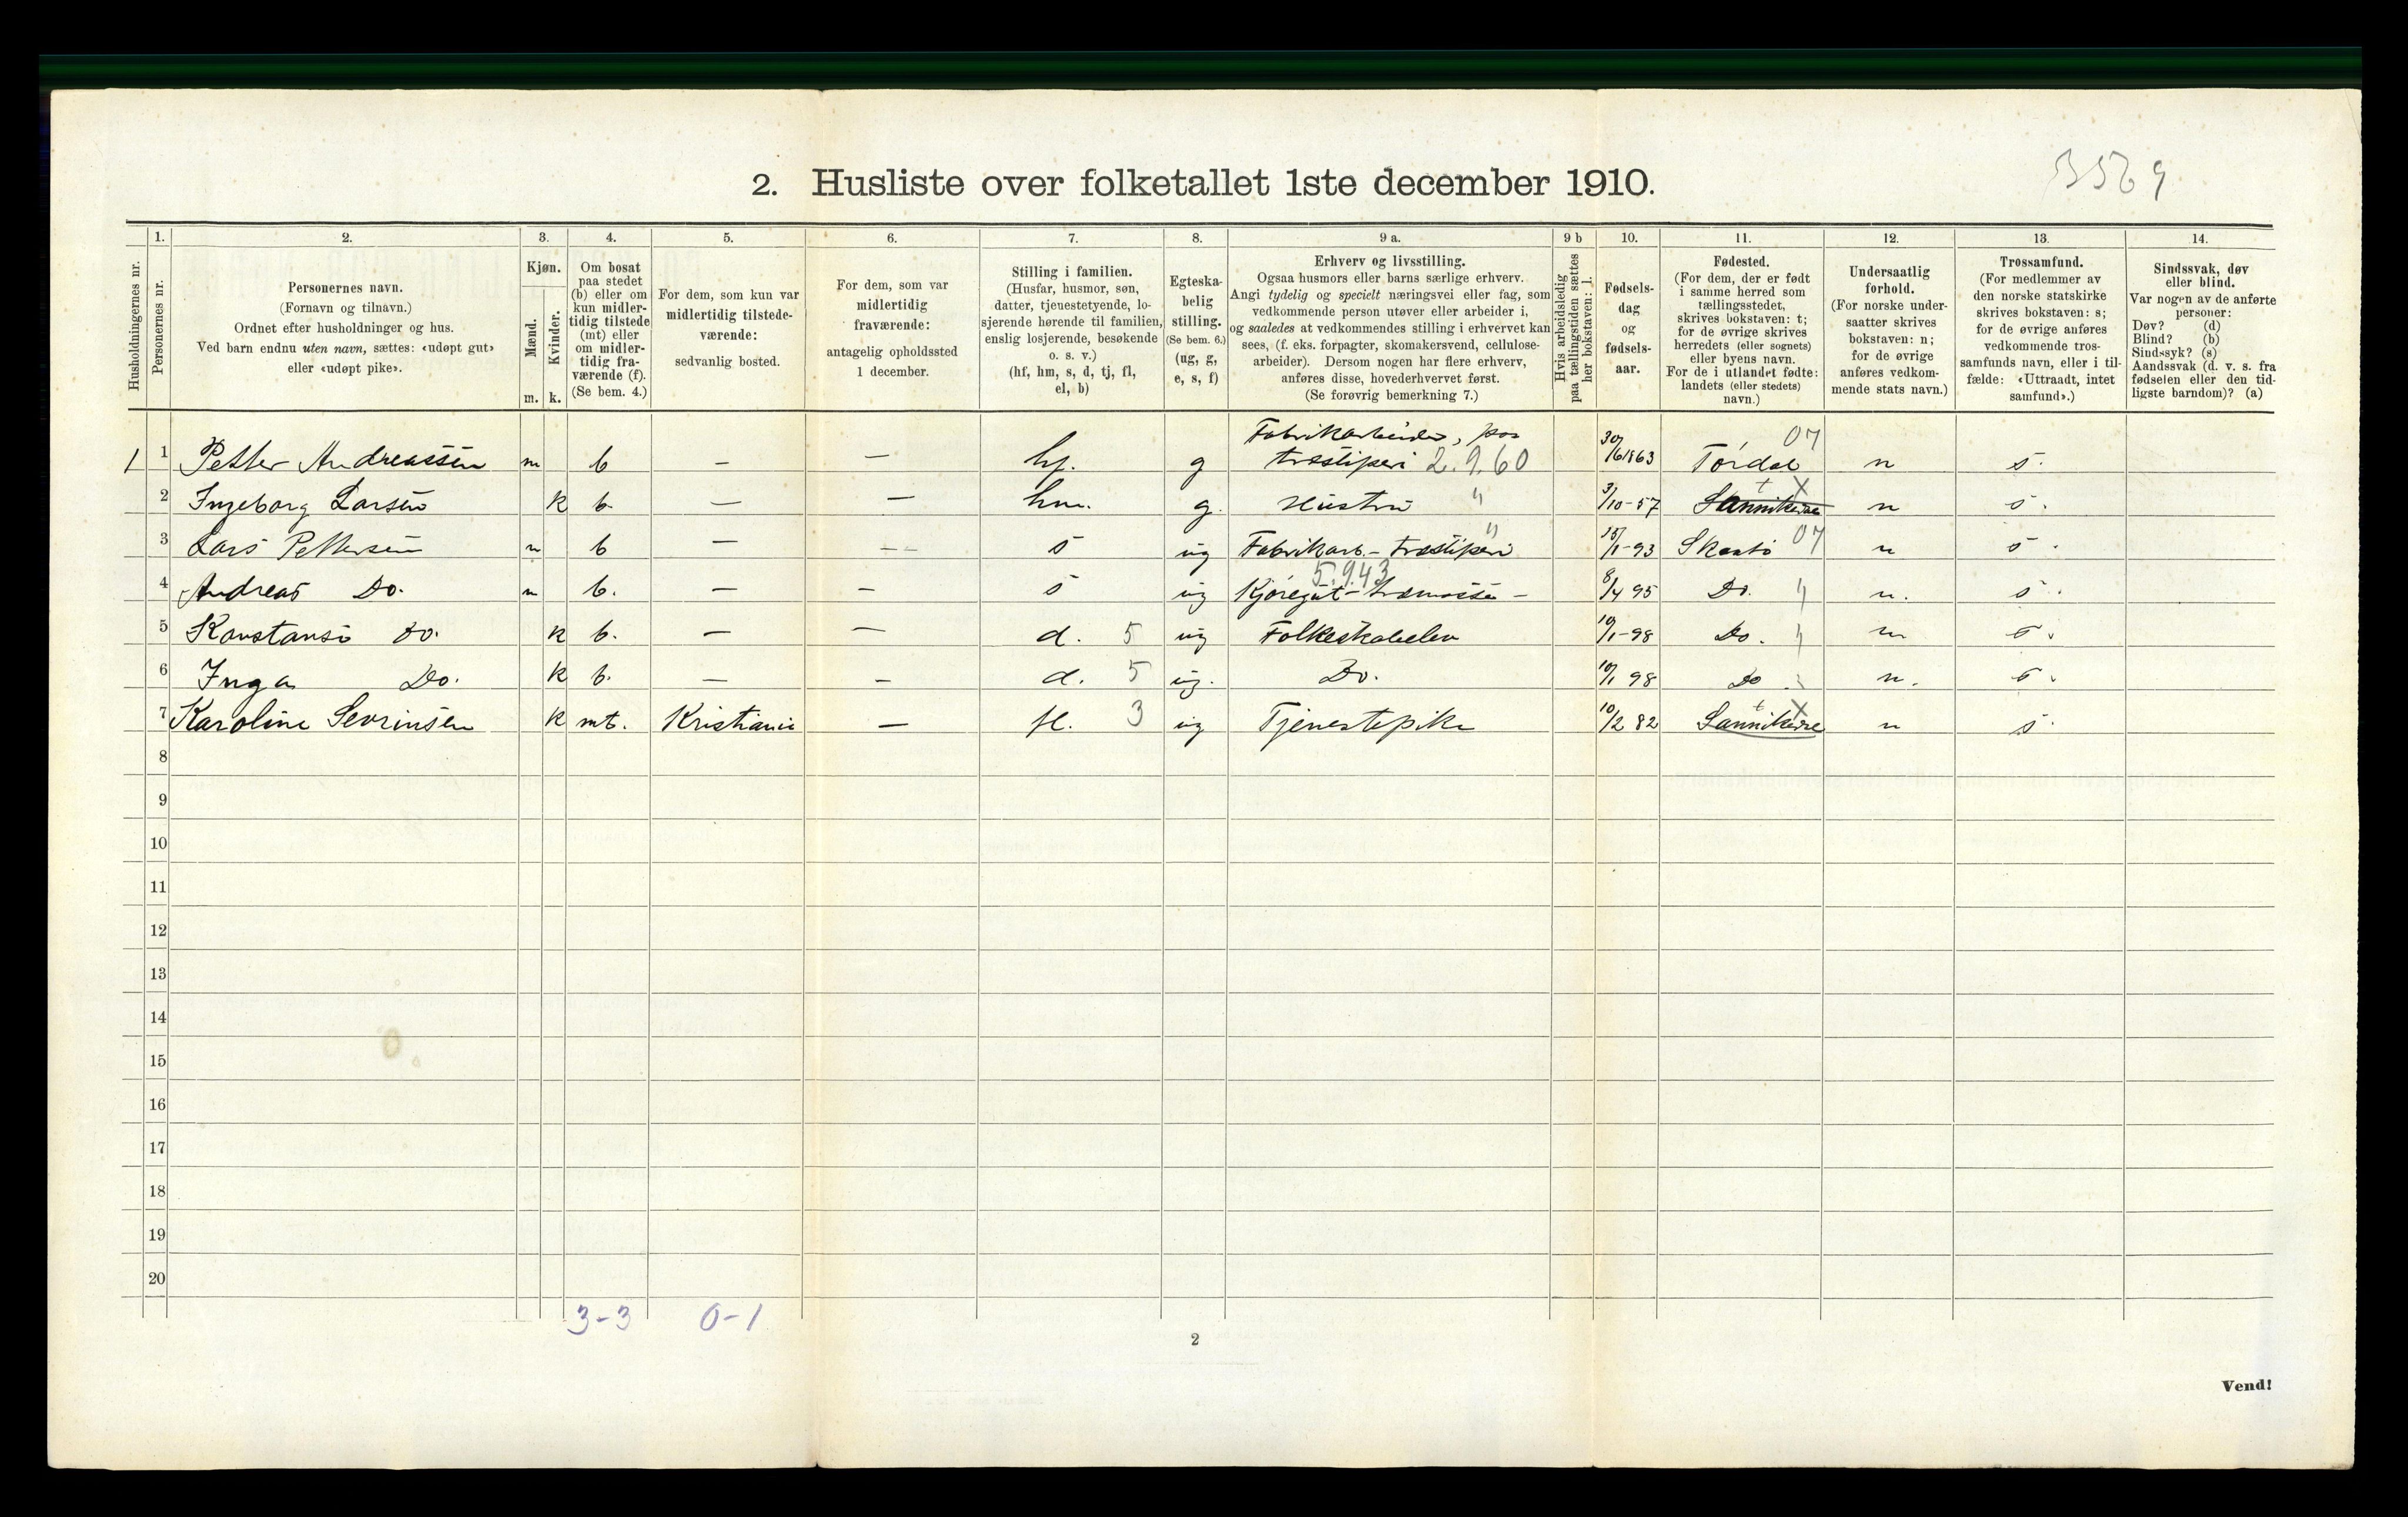 3569
2. Husliste over folketallet 1ste december 1910.
Husholdningernes nr.
1.
Personernes nr.
2.
Personernes navn.
(Fornavn og tilnavn.)
Ordnet efter husholdninger og hus.
Ved barn endnu uten navn, sættes: «udøpt gut»
eller «udøpt pike».
3.
Kjøn.
Mænd.
Kvinder.
m. k.
4.
Om bosat
paa stedet
(b) eller om
kun midler-
tidig tilstede
(mt) eller
om midler-
tidig fra-
værende (f).
(Se bem. 4.)
5.
For dem, som kun var
midlertidig tilstede-
værende:
sedvanlig bosted.
6.
For dem, som var
midlertidig
fraværende:
antagelig opholdssted
1 december.
7.
Stilling i familien.
(Husfar, husmor, søn,
datter, tjenestetyende, lo-
sjerende hørende til familien,
enslig losjerende, besøkende
o. s. v.)
(hf, hm, s, d, tj, fl,
el, b)
8.
Egteska-
belig
stilling.
(Se bem. 6.)
(ug, g,
e, s, f)
9 a.
Erhverv og livsstilling.
Ogsaa husmors eller barns særlige erhverv.
Angi tydelig og specielt næringsvei eller fag, som
vedkommende person utøver eller arbeider i,
og saaledes at vedkommendes stilling i erhvervet kan
sees, (f. eks. forpagter, skomakersvend, cellulose-
arbeider). Dersom nogen har flere erhverv,
anføres disse, hovederhvervet først.
(Se forøvrig bemerkning 7.)
9 b
Hvis arbeidsledig
paa tællingstiden sættes
her bokstaven: l.
10.
Fødsels-
dag
og
fødsels-
aar.
11.
Fødested.
(For dem, der er født
i samme herred som
tællingsstedet,
skrives bokstaven: t;
for de øvrige skrives
herredets (eller sognets)
eller byens navn.
For de i utlandet fødte:
landets (eller stedets)
navn.)
12.
Undersaatlig
forhold.
(For norske under-
saatter skrives
bokstaven: n;
for de øvrige
anføres vedkom-
mende stats navn.)
13.
Trossamfund.
(For medlemmer av
den norske statskirke
skrives bokstaven: s;
for de øvrige anføres
vedkommende tros-
samfunds navn, eller i til-
fælde: «Uttraadt, intet
samfund».)
14.
Sindssvak, døv
eller blind.
Var nogen av de anførte
personer:
Døv? (d)
Blind? (b)
Sindssyk? (s)
Aandssvak (d. v. s. fra
fødselen eller den tid-
ligste barndom)? (a)
Fabrikarbeider, paa 07
1 1 Petter Andreassen m b — — hf. g træsliperi 2.9.60 30/6 1863 Tørdal n s.
2 Ingeborg Larsen k b. — — hm. g. Hustru " 3/10-57 Sannikedal t X n s.
3 Lars Pettersen m b — — s ug Fabrikarb.- træsliperi " 15/1-93 Skaatø 07 n s.
5.943
4 Andreas Do. m b. — — s ug Kjøregut - træmasse - 8/4 95 Do. " n. s.
5 Konstanse do. k b. — — d. 5 ug Folkeskoleelev 10/1-98 Do. " n s.
6 Inga Do. k b. — — d. 5 ug. Do. 10/1 98 Do " n. s.
7 Karoline Sevrinsen k mt. Kristiania — fl. 3 ug Tjenestepike 10/2 82 Sannikedal t X n s.
8
9
10
11
12
13
14
15
16
17
18
19
20
3-3 0-1
2
Vend!